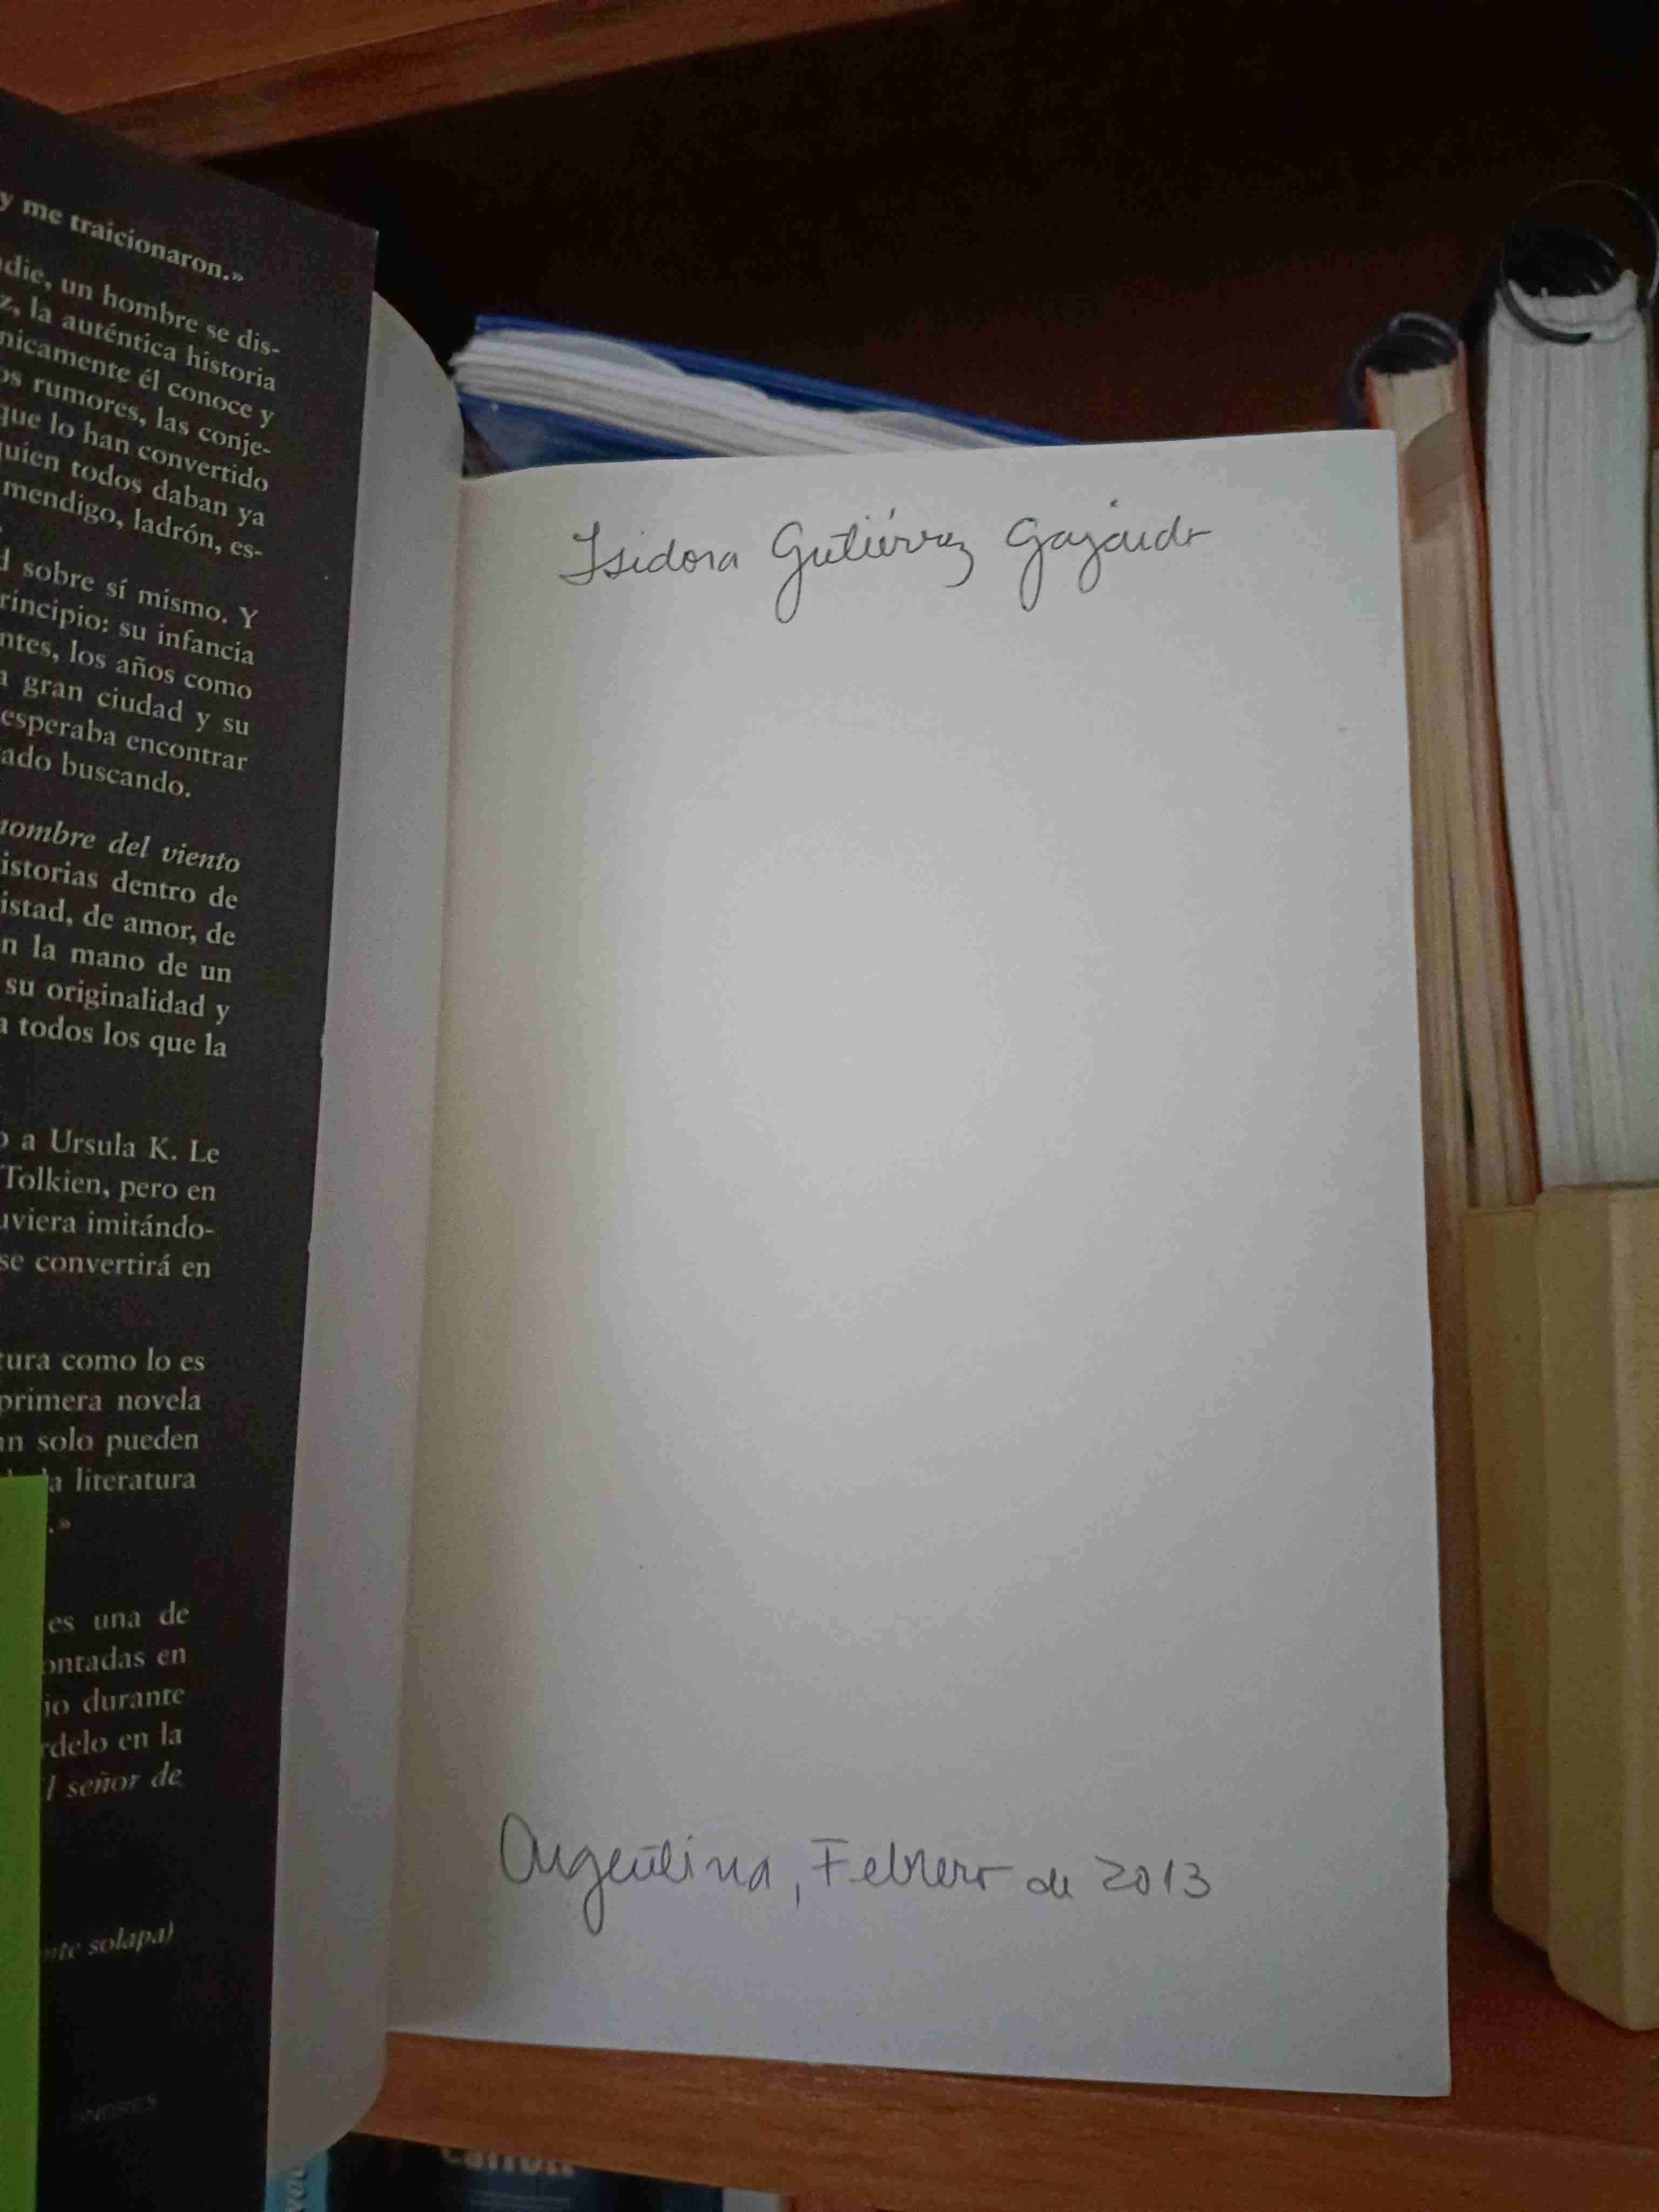 y me traicionaron.»
un hombre se dis-
la auténtica historia
él conoce y
rumores, las conje-
que lo han convertido
todos daban ya
mendigo, ladrón, es-
sobre sí mismo. Y
su infancia
los años como
gran ciudad y su
esperaba encontrar
buscando.
del viento
dentro de
de amor, de
la mano de un
su originalidad y
todos los que la
a Ursula K. Le
Tolkien, pero en
imitándo-
se convertirá en
como lo es
primera novela
solo pueden
literatura
.»
es una de
en
durante
en la
señor de
solapa)
Isidora Gutiérrez Gajardo
Argentina, Febrero de 2013